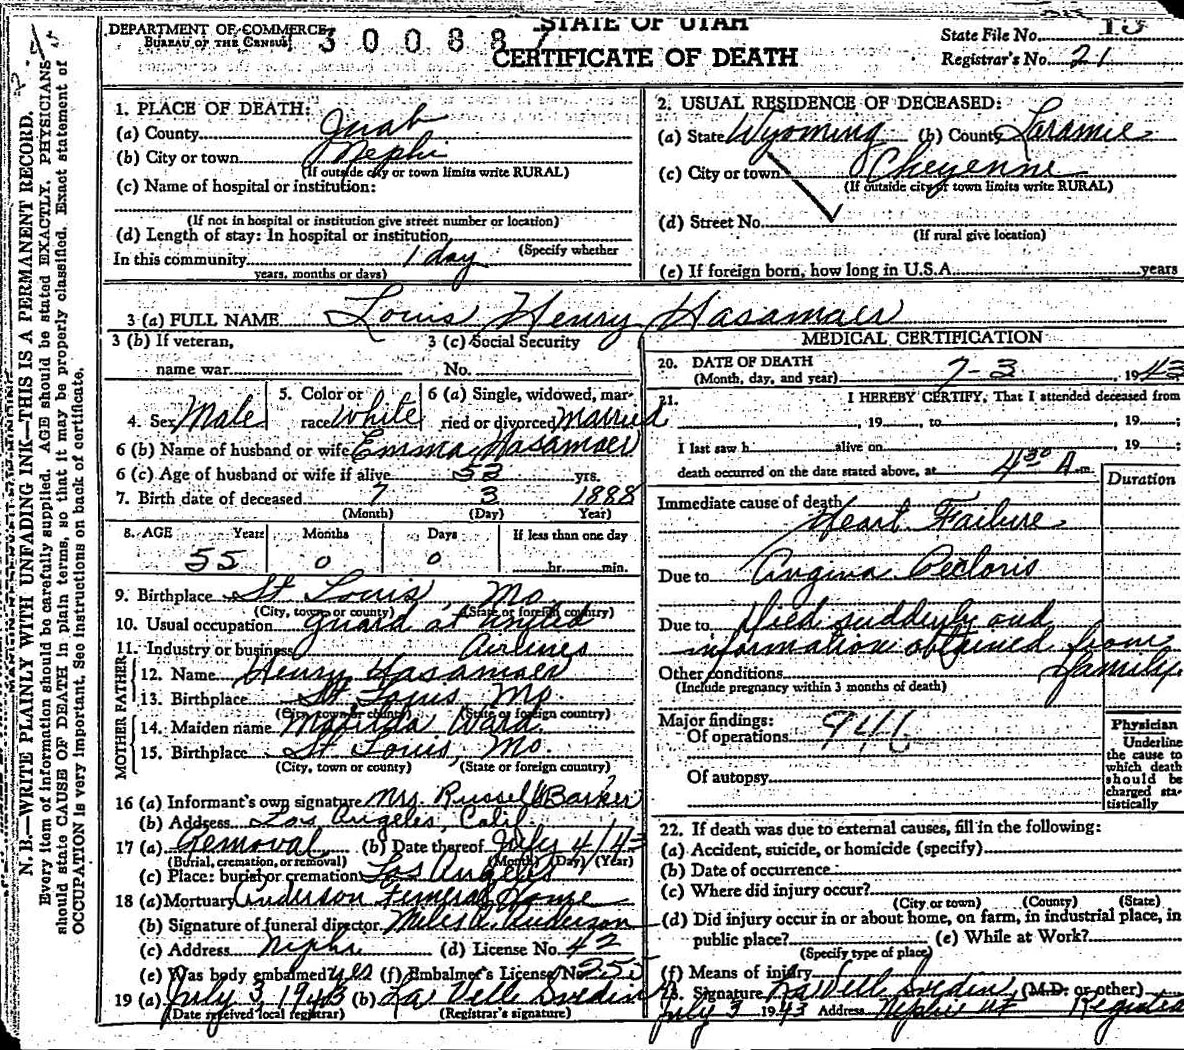 DEPARTMENT OF COMMERCE
BUREAU OF THE CENSUS
300887
STATE OF UTAH
CERTIFICATE OF DEATH
State File No. 13
Registrar's No. 21
N. B.—WRITE PLAINLY WITH UNFADING INK—THIS IS A PERMANENT RECORD.
Every item of information should be carefully supplied. AGE should be stated EXACTLY. PHYSICIANS
should state CAUSE OF DEATH in plain terms, so that it may be properly classified. Exact statement of
OCCUPATION is very important. See instructions on back of certificate.
1. PLACE OF DEATH:
(a) County Juab
(b) City or town Nephi
(If outside city or town limits write RURAL)
(c) Name of hospital or institution:
(If not in hospital or institution give street number or location)
(d) Length of stay: In hospital or institution
(Specify whether
In this community 1 day
years, months or days)
2. USUAL RESIDENCE OF DECEASED:
(a) State Wyoming (b) County Laramie
(c) City or town Cheyenne
(If outside city or town limits write RURAL)
(d) Street No.
(If rural give location)
(e) If foreign born, how long in U.S.A. years
3 (a) FULL NAME Louis Henry Hasamaer
3 (b) If veteran,
name war
3 (c) Social Security
No.
4. Sex Male
5. Color or
race White
6 (a) Single, widowed, mar-
ried or divorced Married
6 (b) Name of husband or wife Emma Hasamaer
6 (c) Age of husband or wife if alive 53 yrs.
7. Birth date of deceased 7 3 1888
(Month) (Day) Year)
8. AGE Years Months Days If less than one day
55 0 0 hr. min.
9. Birthplace St Louis, Mo.
(City, town or county) (State or foreign country)
10. Usual occupation guard at United
11. Industry or business Airlines
FATHER
12. Name Henry Hasamaer
13. Birthplace St Louis, Mo.
(City, town or county) (State or foreign country)
MOTHER
14. Maiden name Matilda Ward
15. Birthplace St Louis, Mo.
(City, town or county) (State or foreign country)
16 (a) Informant's own signature Mrs. Russell Barker
(b) Address Los Angeles, Calif.
17 (a) Removal (b) Date thereof July 4/43
(Burial, cremation, or removal) (Month) (Day) (Year)
(c) Place: burial or cremation Los Angeles
18 (a) Mortuary Anderson Funeral Home
(b) Signature of funeral director Miles A. Anderson
(c) Address Nephi (d) License No. 42
(e) Was body embalmed yes (f) Embalmer's License No. 255
19 (a) July 3 1943 (b) La Velle Svedin
(Date received local registrar) (Registrar's signature)
MEDICAL CERTIFICATION
20. DATE OF DEATH
(Month, day, and year) 7-3, 1943
21. I HEREBY CERTIFY, That I attended deceased from
, 19 , to , 19 ;
I last saw h alive on , 19 ;
death occurred on the date stated above, at 4 30 A m.
Duration
Immediate cause of death
Heart Failure
Due to Angina Pectoris
Due to Died suddenly and
information obtained from
family.
Other conditions
(Include pregnancy within 3 months of death)
Major findings:
Of operations 94b
Of autopsy
Physician
Underline
the cause to
which death
should be
charged sta-
tistically
22. If death was due to external causes, fill in the following:
(a) Accident, suicide, or homicide (specify)
(b) Date of occurrence
(c) Where did injury occur?
(City or town) (County) (State)
(d) Did injury occur in or about home, on farm, in industrial place, in
public place? (e) While at Work?
(Specify type of place)
(f) Means of injury
23. Signature La Velle Svedin, (M.D. or other)
July 3 1943 Address Nephi Ut Registrar